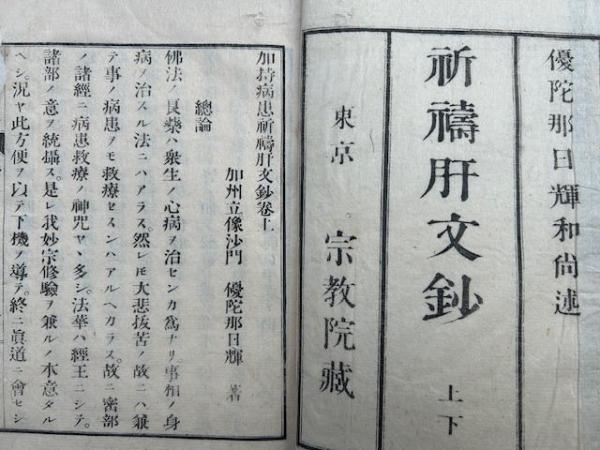 優陀那日輝和尚述
祈禱肝文鈔 上下
東京 宗教院藏
加持病患祈禱肝文鈔卷上
加州立像沙門 優陀那日輝 著
總論
佛法ノ良藥ハ衆生ノ心病ヲ治センカ爲ナリ。事相ノ身
病ヲ治スル法ニハアラス。然レ𪜈大悲拔苦ノ故ニハ兼
テ事ノ病患ヲモ救療セスンハアルヘカラス。故ニ密部
ノ諸經ニ病患救療ノ神咒ヤヽ多シ。法華ハ經王ニシテ。
諸部ノ意ヲ統攝ス。是レ我妙宗修驗ヲ兼ルノ本意タル
ヘシ。況ヤ此方便ヲ以テ下機ノ導テ。終ニ眞道ニ會セシ